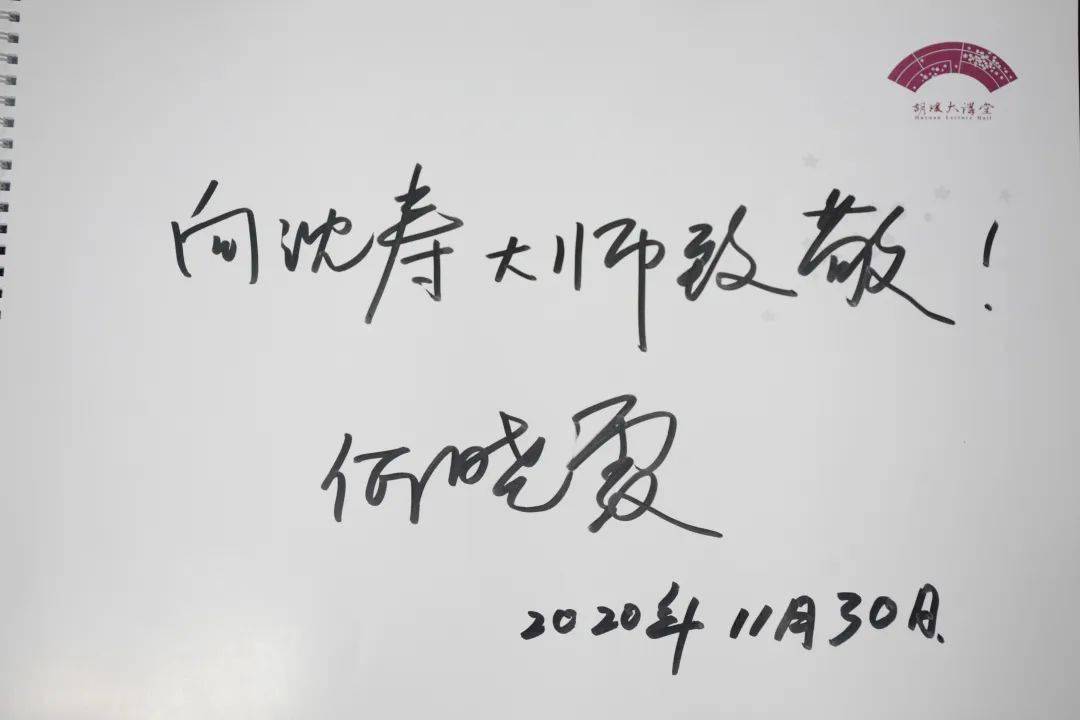 胡瑗大講堂
Huyuan Lecture Hall
向沈寿大师致敬！
何晓霞
2020年11月30日